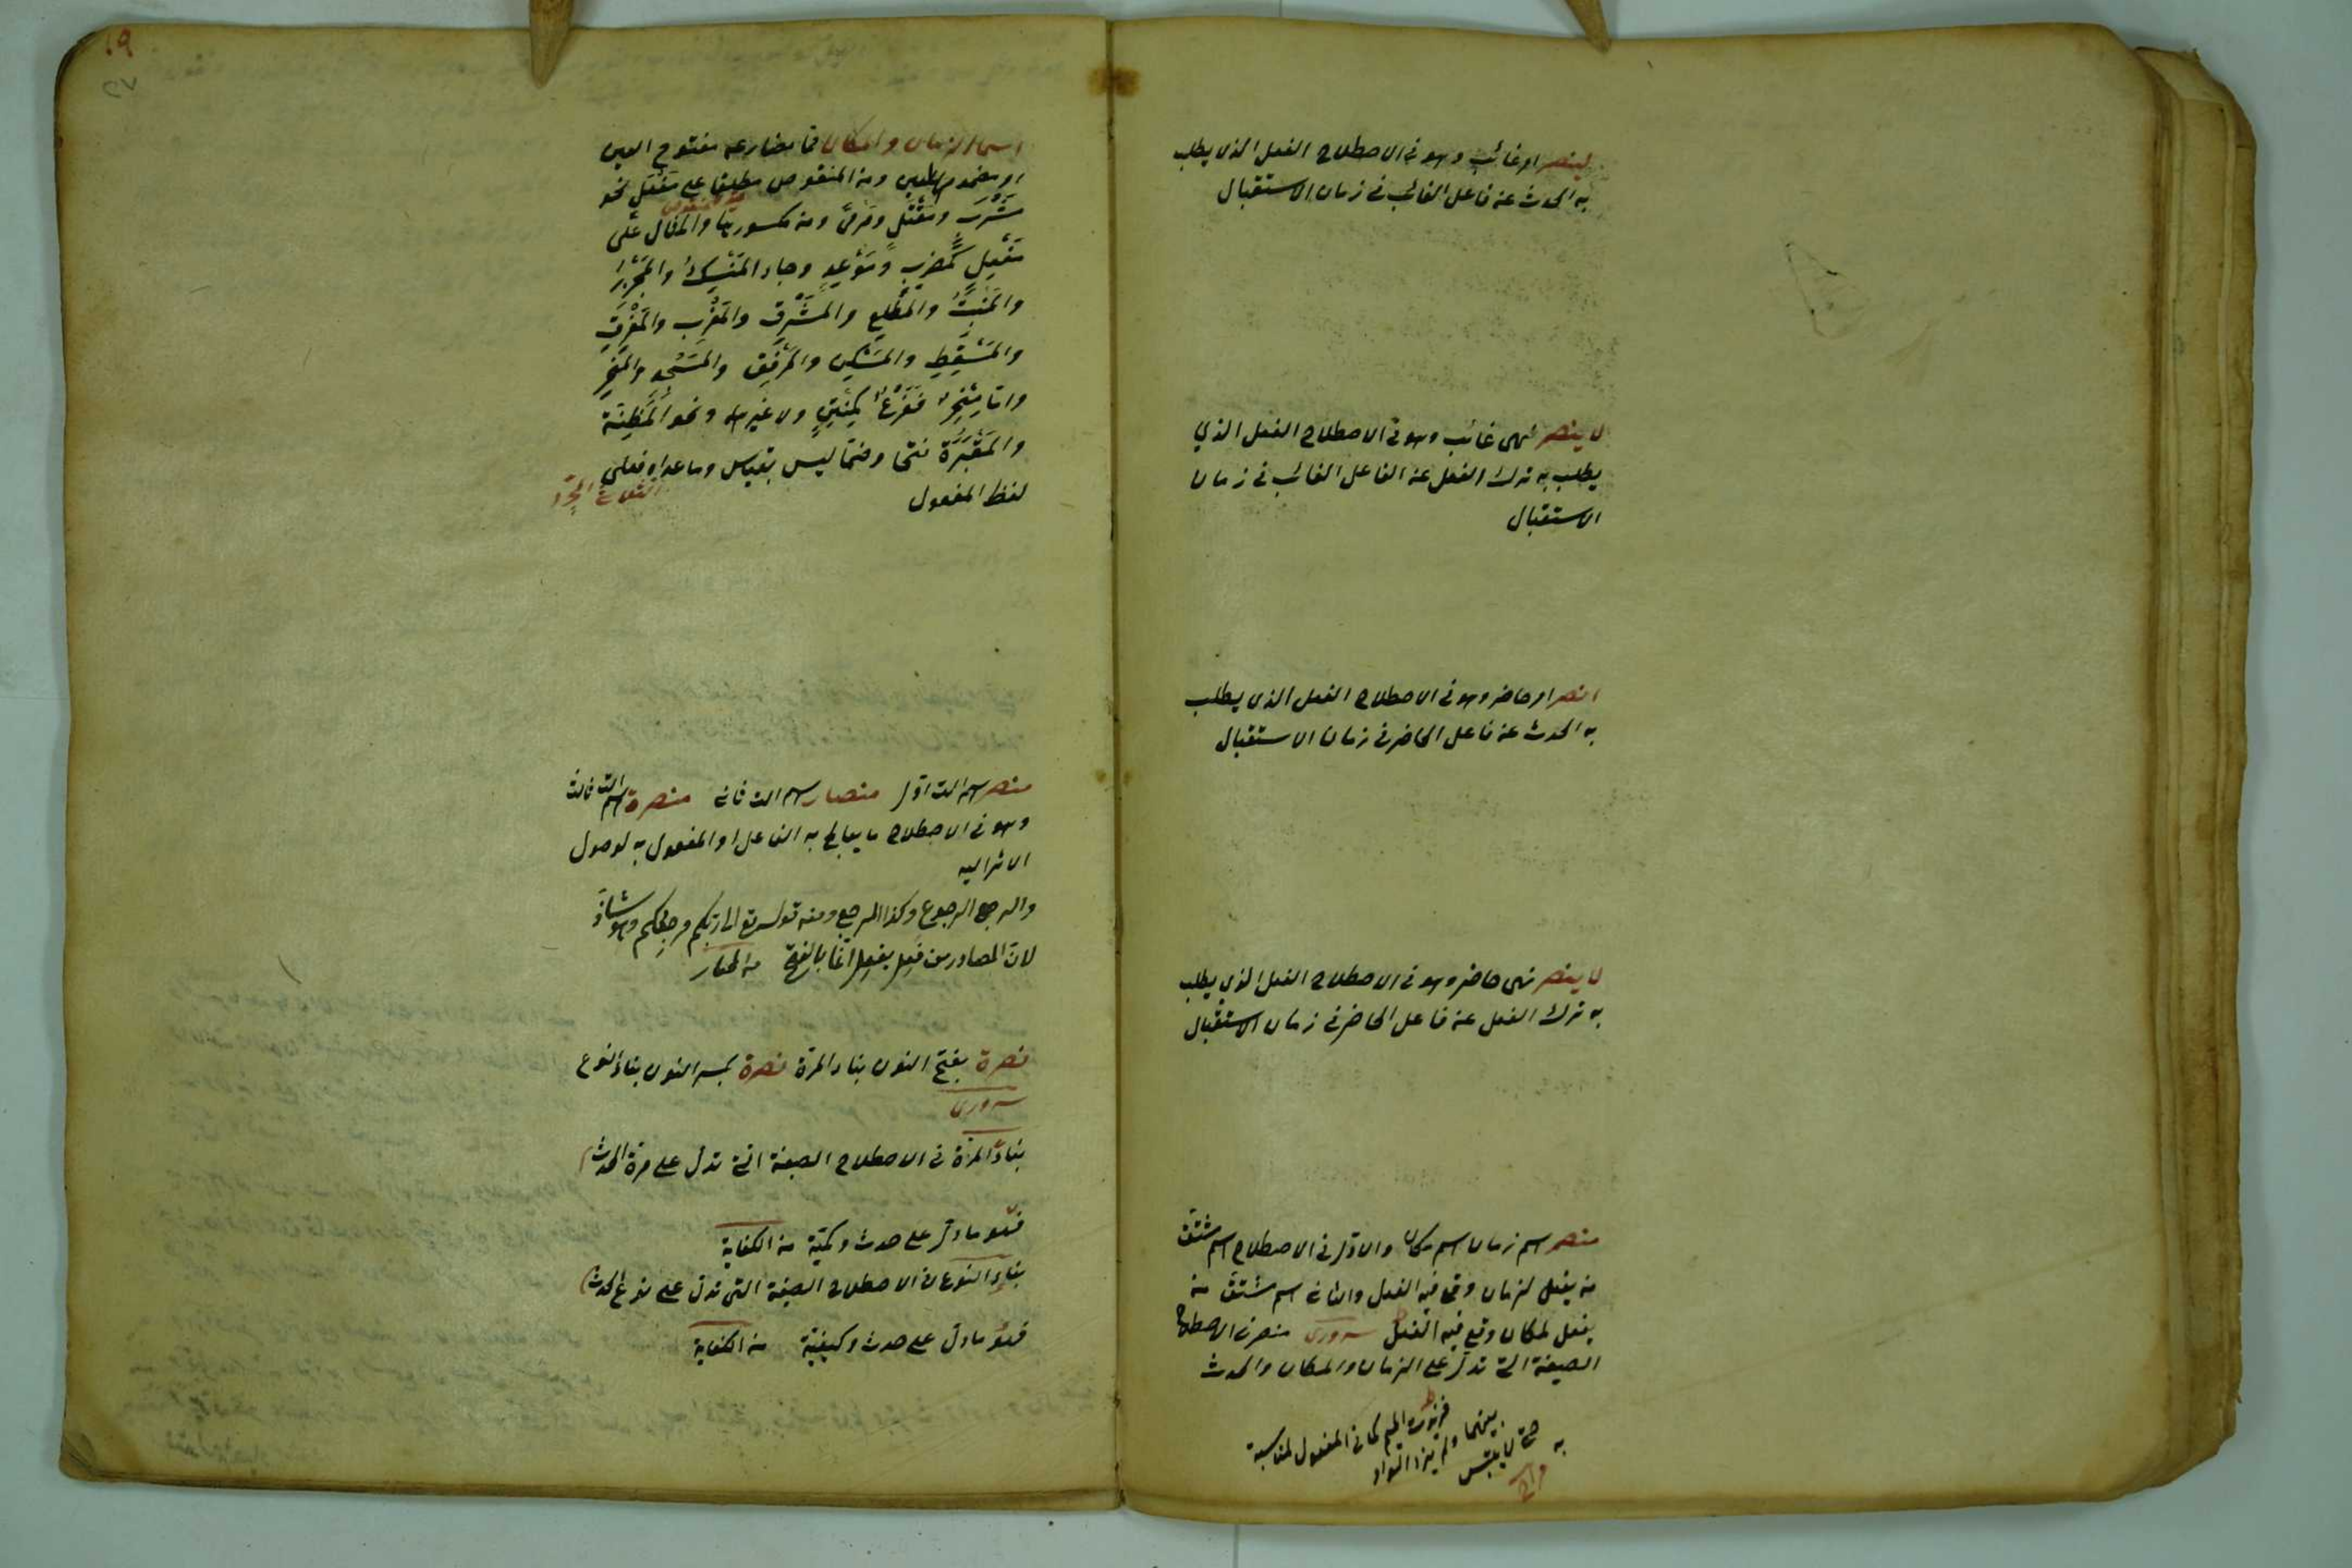 لينصر امر غائب وهو فى الاصطلاح الفعل الذى يطلب
به الحدث عن فاعل الغائب فى زمان الاستقبال
لا ينصر نهى غائب وهو فى الاصطلاح الفعل الذي
يطلب به ترك الفعل عن الفاعل الغائب فى زمان
الاستقبال
انصر امر حاضر وهو فى الاصطلاح الفعل الذى يطلب
به الحدث عن فاعل الحاضر فى زمان الاستقبال
لا ينصر نهى حاضر وهو فى الاصطلاح الفعل الذي يطلب
به ترك الفعل عن فاعل الحاضر فى زمان الاستقبال
منصر اسم زمان اسم مكان والاول فى الاصطلاح اسم مشتق
من يفعل لزمان وقع فيه الفعل والثانى اسم مشتق من
يفعل لمكان وقع فيه الفعل سرورى منصر فى الاصطلاح
الصيغة التى تدل على الزمان والمكان والحدث
فزيدت الميم كما فى المفعول لمناسبة
بينهما ولم يزد الواو
حتى لا يلتبس
به
مراح
١٩
٢٧
اسما الزمان والمكان مما مضارعه مفتوح العين
او مضموم العين ومن المنقوص مطلقا على مَفْعَل نحو
مَشْرَب ومَقْتَل ومَرمًى ومن مكسورها والمثال على
مَفْعِل كمَضرِب ومَوْعِد وجاء المَنْسِكُ والمَجْزِرُ
والمَنْبِتُ والمَطْلِع والمَشْرِق والمَغْرِب والمَفْرِق
والمَسْقِط والمَسْكِن والمَرْفِق والمَسْجِد والمَنْخِر
واما مِنْخِر فَفَرْعٌ كمِنْتِن ولا غيرهما ونحو المَظِنَّة
والمَقْبَرَة فتحا وضمّا ليس بقياس وما عداه فعلى
لفظ المفعول
الثلاثى المجرّد
منصر اسم الت اوّل منصار اسم الت ثانى منصرة اسم الت ثالث
وهو فى الاصطلاح ما يعالج به الفاعل او المفعول به لوصول
الاثر اليه
والرجع الرجوع وكذا المرجع ومنه قوله تع الى ربكم مرجعكم وهو شاذّ
لانّ المصادر من فَعَل يفعِل انّما بالفتح من المختار
نصرة بفتح النون بناء المرّة نصرة بكسر النون بناء النوع
سرورى
بناء المرّة فى الاصطلاح الصيغة التى تدل على مرة الحدث
فهو ما دلّ على حدث وكميّة من الكفاية
بناء النوع فى الاصطلاح الصيغة التى تدلّ على نوع الحدث
فهو ما دلّ على حدث وكيفيّة من الكفاية